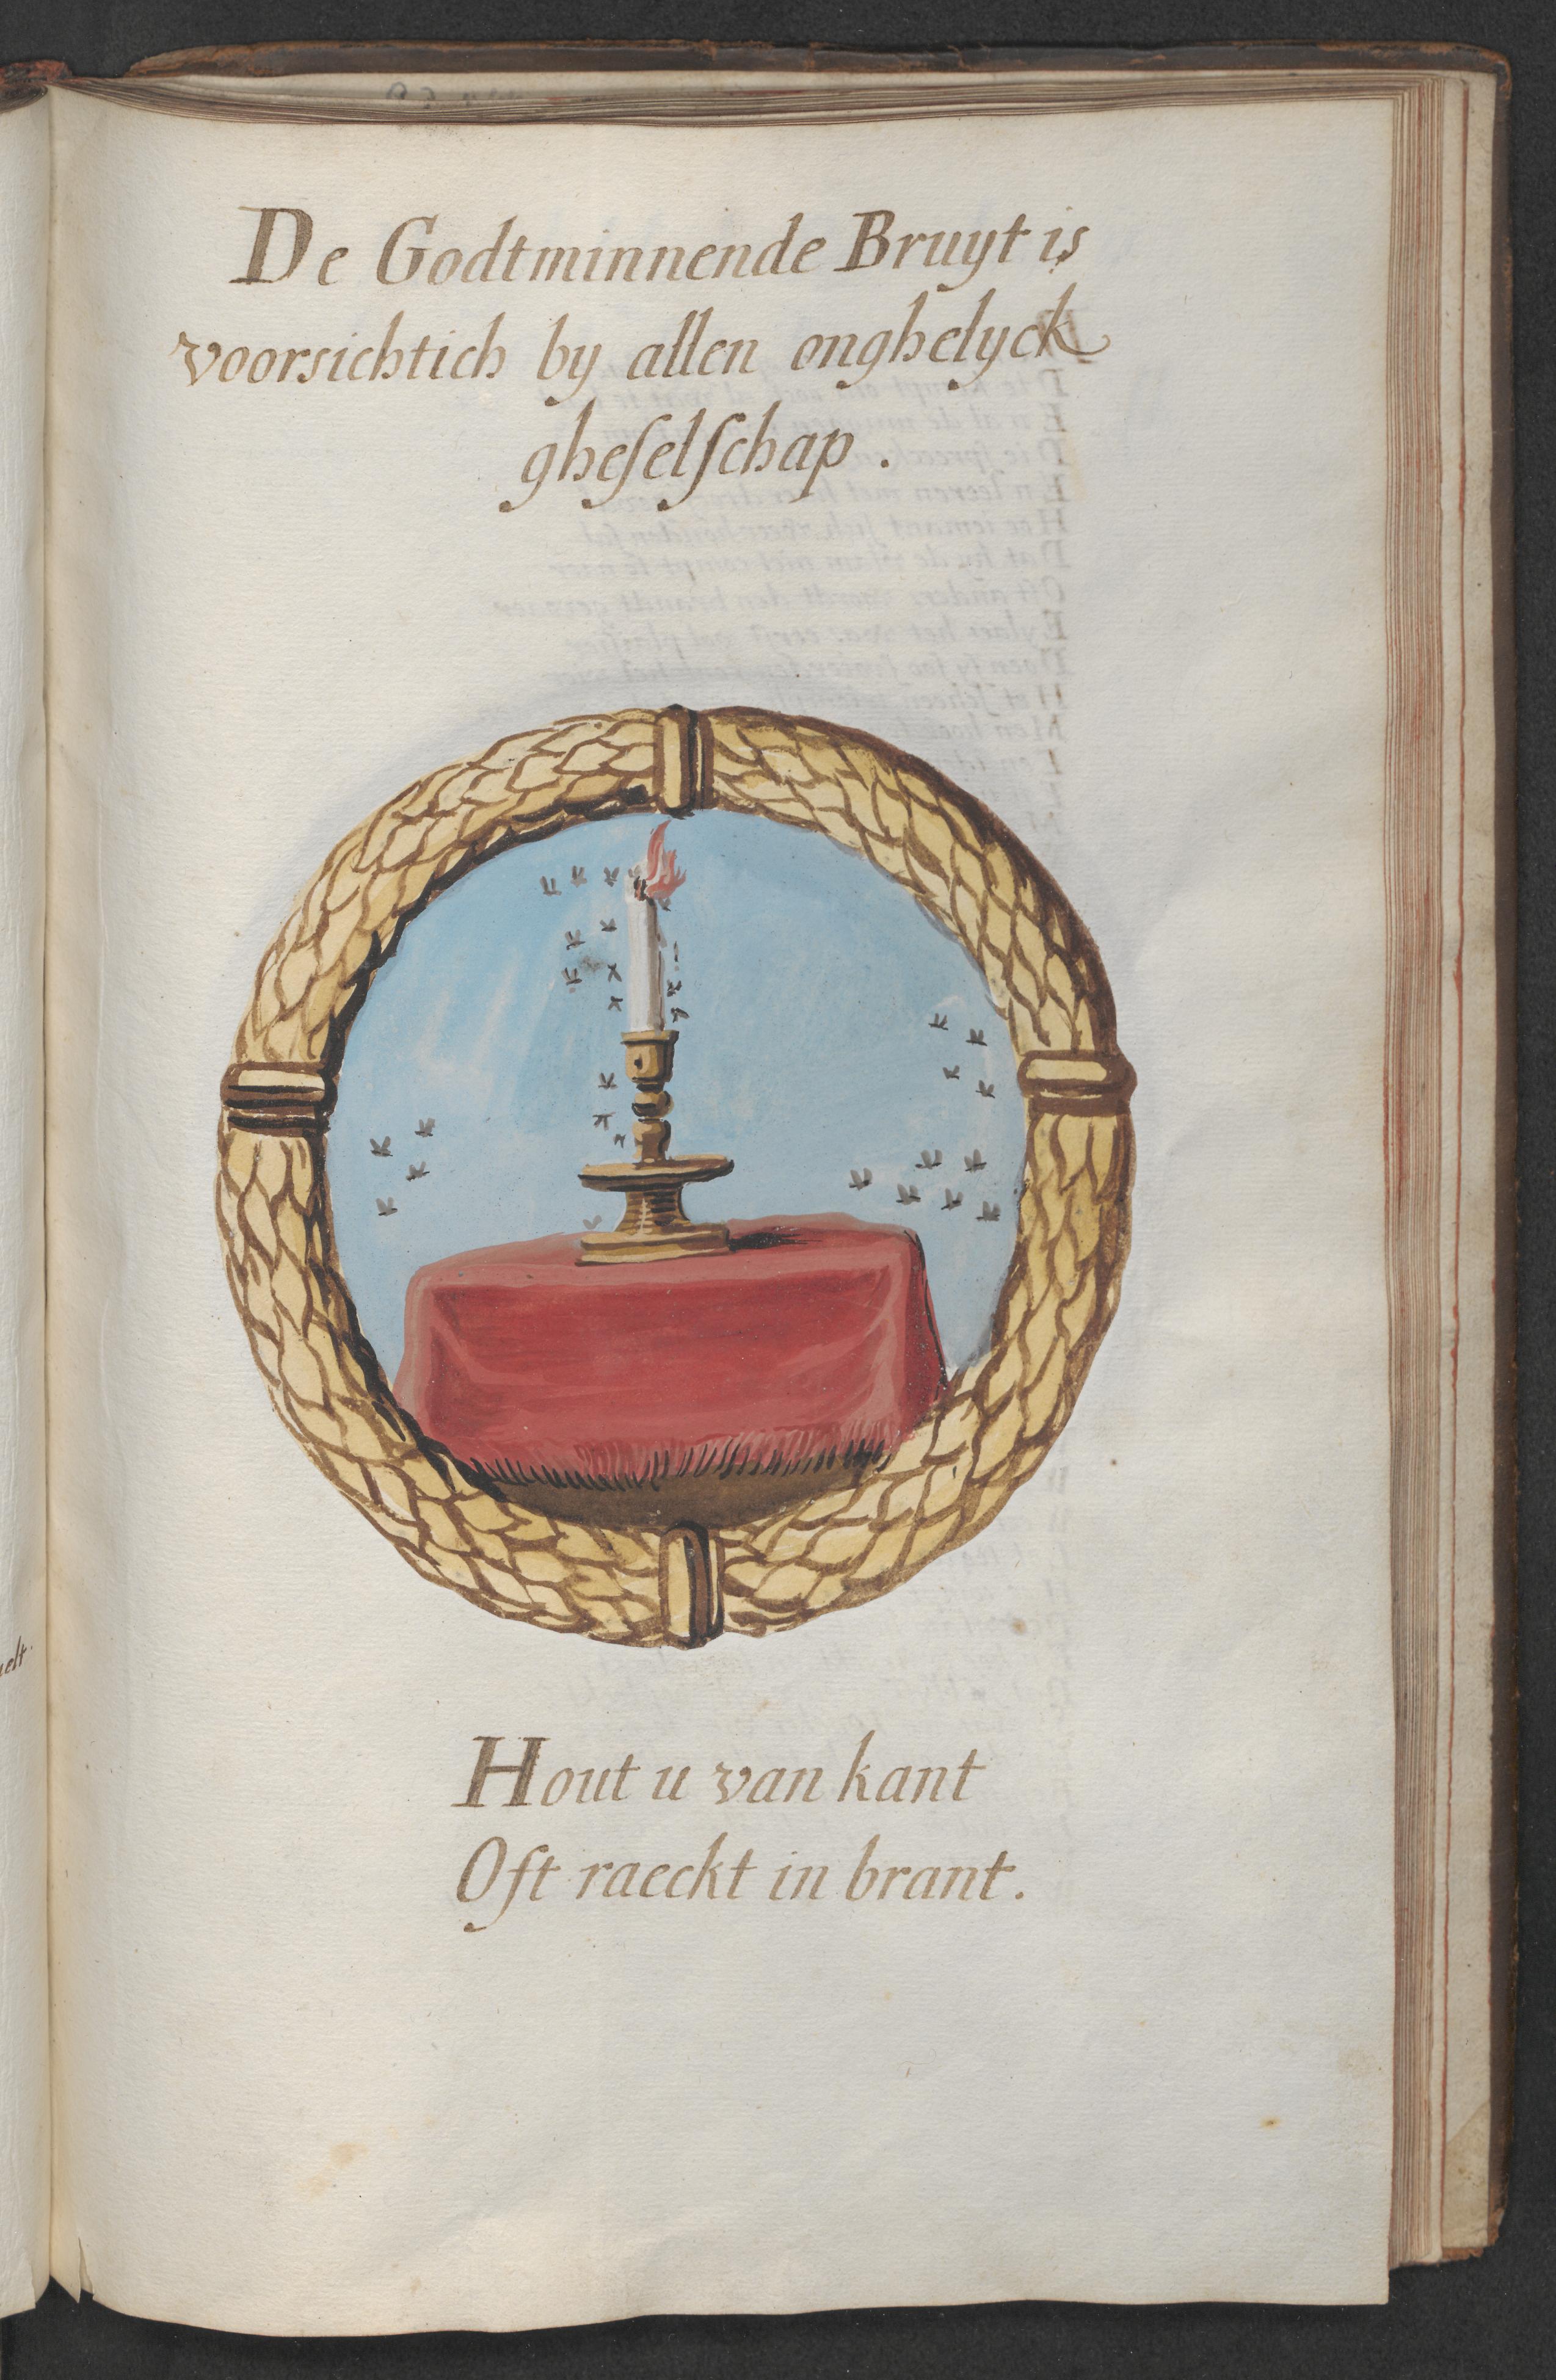 De Godtminnende Bruyt is
voorsichtich by allen onghelyck
gheselschap.
Hout u van kant
Oft raeckt in brant.